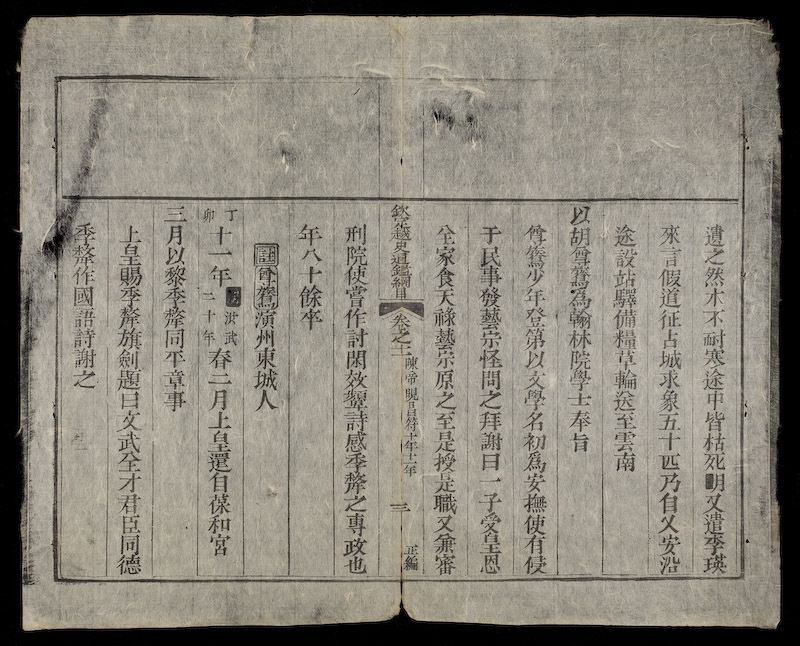 遺之然木不耐寒途中皆枯死明又遣李瑛
來言假道征占城求象五十匹乃自乂安沿
途設站驛備糧草輪送至雲南
以胡尊鷟為翰林院學士奉旨
尊鷟少年登第以文學名初為安撫使有侵
于民事發藝宗怪問之拜謝曰一子受皇恩
全家食天祿藝宗原之至是授是職又兼審
欽定越史通鑑綱目 卷之十一 陳帝晛昌符十年十一年 三 正編
刑院使嘗作討閑效顰詩感季犛之專政也
年八十餘卒
註尊鷟演州東城人
丁卯十一年明洪武二十年春二月上皇還自葆和宮
三月以黎季犛同平章事
上皇賜季犛旗劍題曰文武全才君臣同德
季犛作國語詩謝之